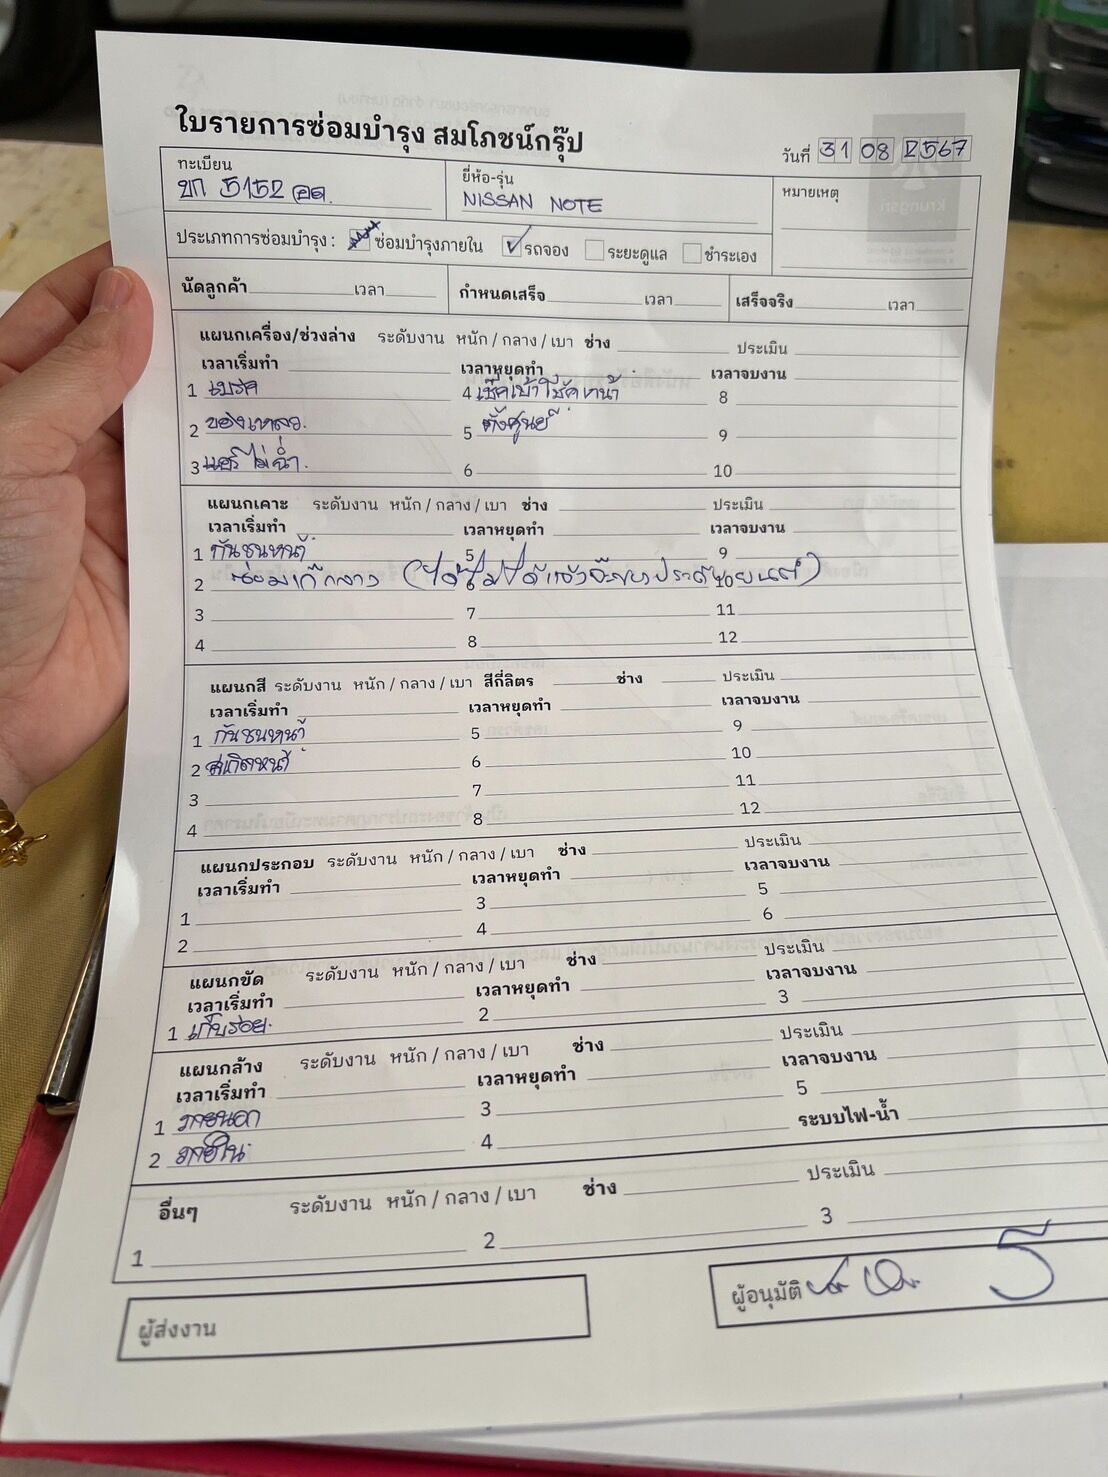 ใบรายการซ่อมบำรุง สมโภชน์กรุ๊ป
วันที่ 31 08 2567
ทะเบียน
ขก 5152 อด.
ยี่ห้อ-รุ่น
NISSAN NOTE
หมายเหตุ
ประเภทการซ่อมบำรุง : ซ่อมบำรุงภายใน รถจอง ระยะดูแล ชำระเอง
นัดลูกค้า เวลา กำหนดเสร็จ เวลา เสร็จจริง เวลา
แผนกเครื่อง/ช่วงล่าง ระดับงาน หนัก / กลาง / เบา ช่าง ประเมิน
เวลาเริ่มทำ เวลาหยุดทำ เวลาจบงาน
1 เบรค 4 เช็คเบ้าโช้คหน้า 8
2 ของเหลว. 5 ตั้งศูนย์ 9
3 แอร์ไม่ฉ่ำ. 6 10
แผนกเคาะ ระดับงาน หนัก / กลาง / เบา ช่าง ประเมิน
เวลาเริ่มทำ เวลาหยุดทำ เวลาจบงาน
1 กันชนหน้า 5 9
2 ซ่อม (ได้ไม่ได้แจ้ง 6 10
3 7 11
4 8 12
แผนกสี ระดับงาน หนัก / กลาง / เบา สีกี่ลิตร ช่าง ประเมิน
เวลาเริ่มทำ เวลาหยุดทำ เวลาจบงาน
1 กันชนหน้า 5 9
2 สเกิตหน้า 6 10
3 7 11
4 8 12
แผนกประกอบ ระดับงาน หนัก / กลาง / เบา ช่าง ประเมิน
เวลาเริ่มทำ เวลาหยุดทำ เวลาจบงาน
1 3 5
2 4 6
แผนกขัด ระดับงาน หนัก / กลาง / เบา ช่าง ประเมิน
เวลาเริ่มทำ เวลาหยุดทำ เวลาจบงาน
1 เก็บรอย. 2 3
แผนกล้าง ระดับงาน หนัก / กลาง / เบา ช่าง ประเมิน
เวลาเริ่มทำ เวลาหยุดทำ เวลาจบงาน
1 ภายนอก 3 5
2 ภายใน. 4 ระบบไฟ-น้ำ
อื่นๆ ระดับงาน หนัก / กลาง / เบา ช่าง ประเมิน
1 2 3
ผู้ส่งงาน
ผู้อนุมัติ